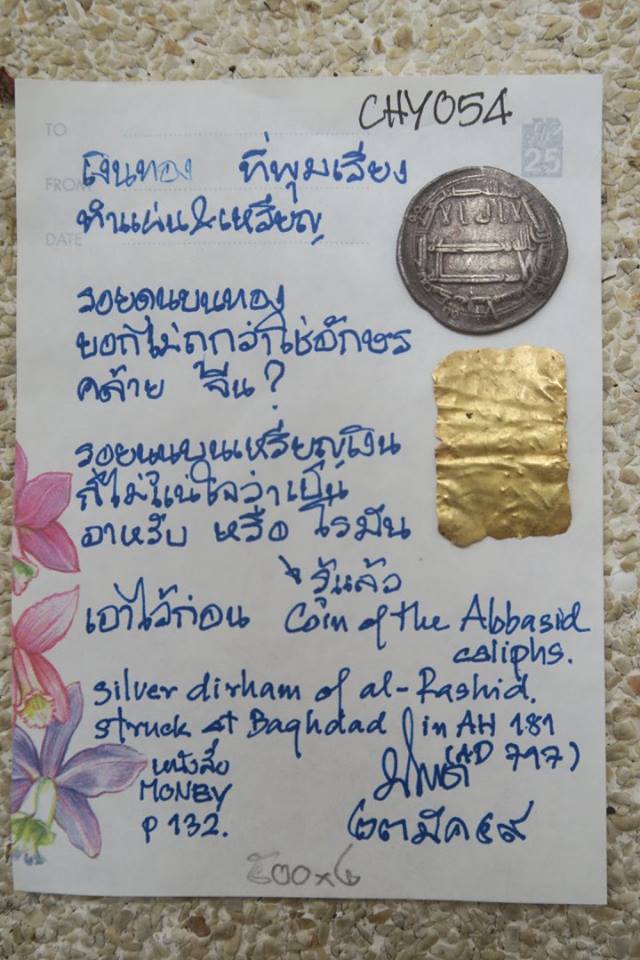 CHY054
TO
25
เงินทอง ที่พุมเรียง
FROM
ทำแผ่น & เหรียญ
DATE
รอยดุนบนทอง
บอกไม่ถูกว่าใช่อักษร
คล้าย จีน?
รอยนูนบนเหรียญเงิน
ก็ไม่แน่ใจว่าเป็น
อาหรับ หรือ โรมัน
รู้แล้ว
เอาไว้ก่อน Coin of the Abbasid
caliphs.
silver dirham of al-Rashid.
struck at Baghdad in AH 181
(AD 797)
หนังสือ
MONBY
P 132.
๒๓ มีค ๕๙
๕๐๐x๖